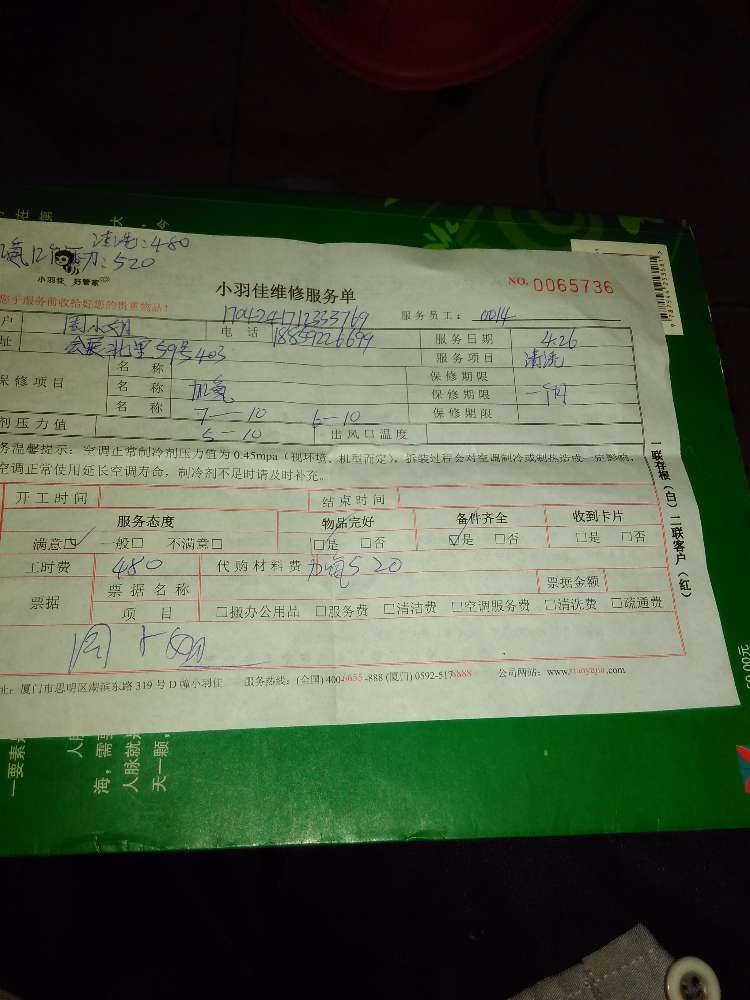 清洗:480
力:520
小羽佳 好管家
小羽佳维修服务单
NO. 0065736
您于服务前收拾好您的贵重物品!
1704241712333769
服务员工: 0014
户
电 话 18859226699
服务日期 4.26
址 会展北里59号403
服务项目 清洗
保修项目
名 称
保修期限
名 称 加氟
保修期限 一个月
名 称 7—10 6—10
保修期限
剂压力值 5—10
出风口温度
务温馨提示:空调正常制冷剂压力值为0.45mpa(视环境、机型而定),拆装过程会对空调制冷或制热造成一定影响,
空调正常使用延长空调寿命,制冷剂不足时请及时补充。
开工时间
结束时间
服务态度
物品完好
备件齐全
收到卡片
满意□ 一般□ 不满意□
□是 □否
□是 □否
□是 □否
工时费 480
代购材料费 加氟520
票据
票据名称
票据金额
项 目
□搬办公用品 □服务费 □清洁费 □空调服务费 □清洗费 □疏通费
址:厦门市思明区湖滨东路319号D幢小羽佳
服务热线:(全国)400-6655-888 (厦门)0592-5178888
公司网站:www.xiaoyujia.com
一联存根(白)二联客户(红)
一要素
人脉
海,需要
人脉就
天一颗,